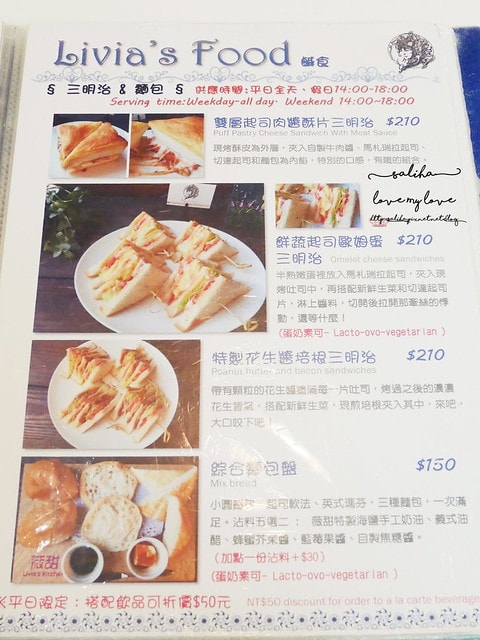 Livia's Food 鹹食
§ 三明治 & 麵包 § 供應時間:平日全天、假日14:00-18:00
Serving time:Weekday-all day. Weekend 14:00~18:00
雙層起司肉醬酥片三明治 $210
Puff Pastry Cheese Sandwich With Meat Sauce
現烤酥皮為外層,夾入自製牛肉醬、馬札瑞拉起司、
切達起司和麵包為內餡,特別的口感,有嚼的組合。
saliha
love my love
鮮蔬起司歐姆蛋 $210
三明治 Omelet cheese sandwiches
半熟嫩蛋裡放入馬札瑞拉起司,夾入現
烤吐司中,再搭配新鮮生菜和切達起司
片,淋上醬料,切開後拉開那牽絲的悸
動,還等什麼!
(蛋奶素可- Lacto-ovo-vegetarian )
特製花生醬培根三明治 $210
Peanut butter and bacon sandwiches
帶有顆粒的花生醬塗滿每一片吐司,烤過之後的濃濃
花生香氣,搭配新鮮生菜,現煎培根夾入其中,來吧,
大口咬下吧!
綜合麵包盤 $150
Mix bread
小圓、起司軟法、英式瑪芬,三種麵包,一次滿
足。沾料五選二:薇甜特製海鹽手工奶油、義式油
醋、蜂蜜芥茉醬、藍莓果醬、自製焦糖醬。
(加點一份沾料+$30)
(蛋奶素可- Lacto-ovo-vegetarian )
薇甜
Livia's Kitchen
平日限定:搭配飲品可折價$50元 NT$50 discount for order to a la carte beverage